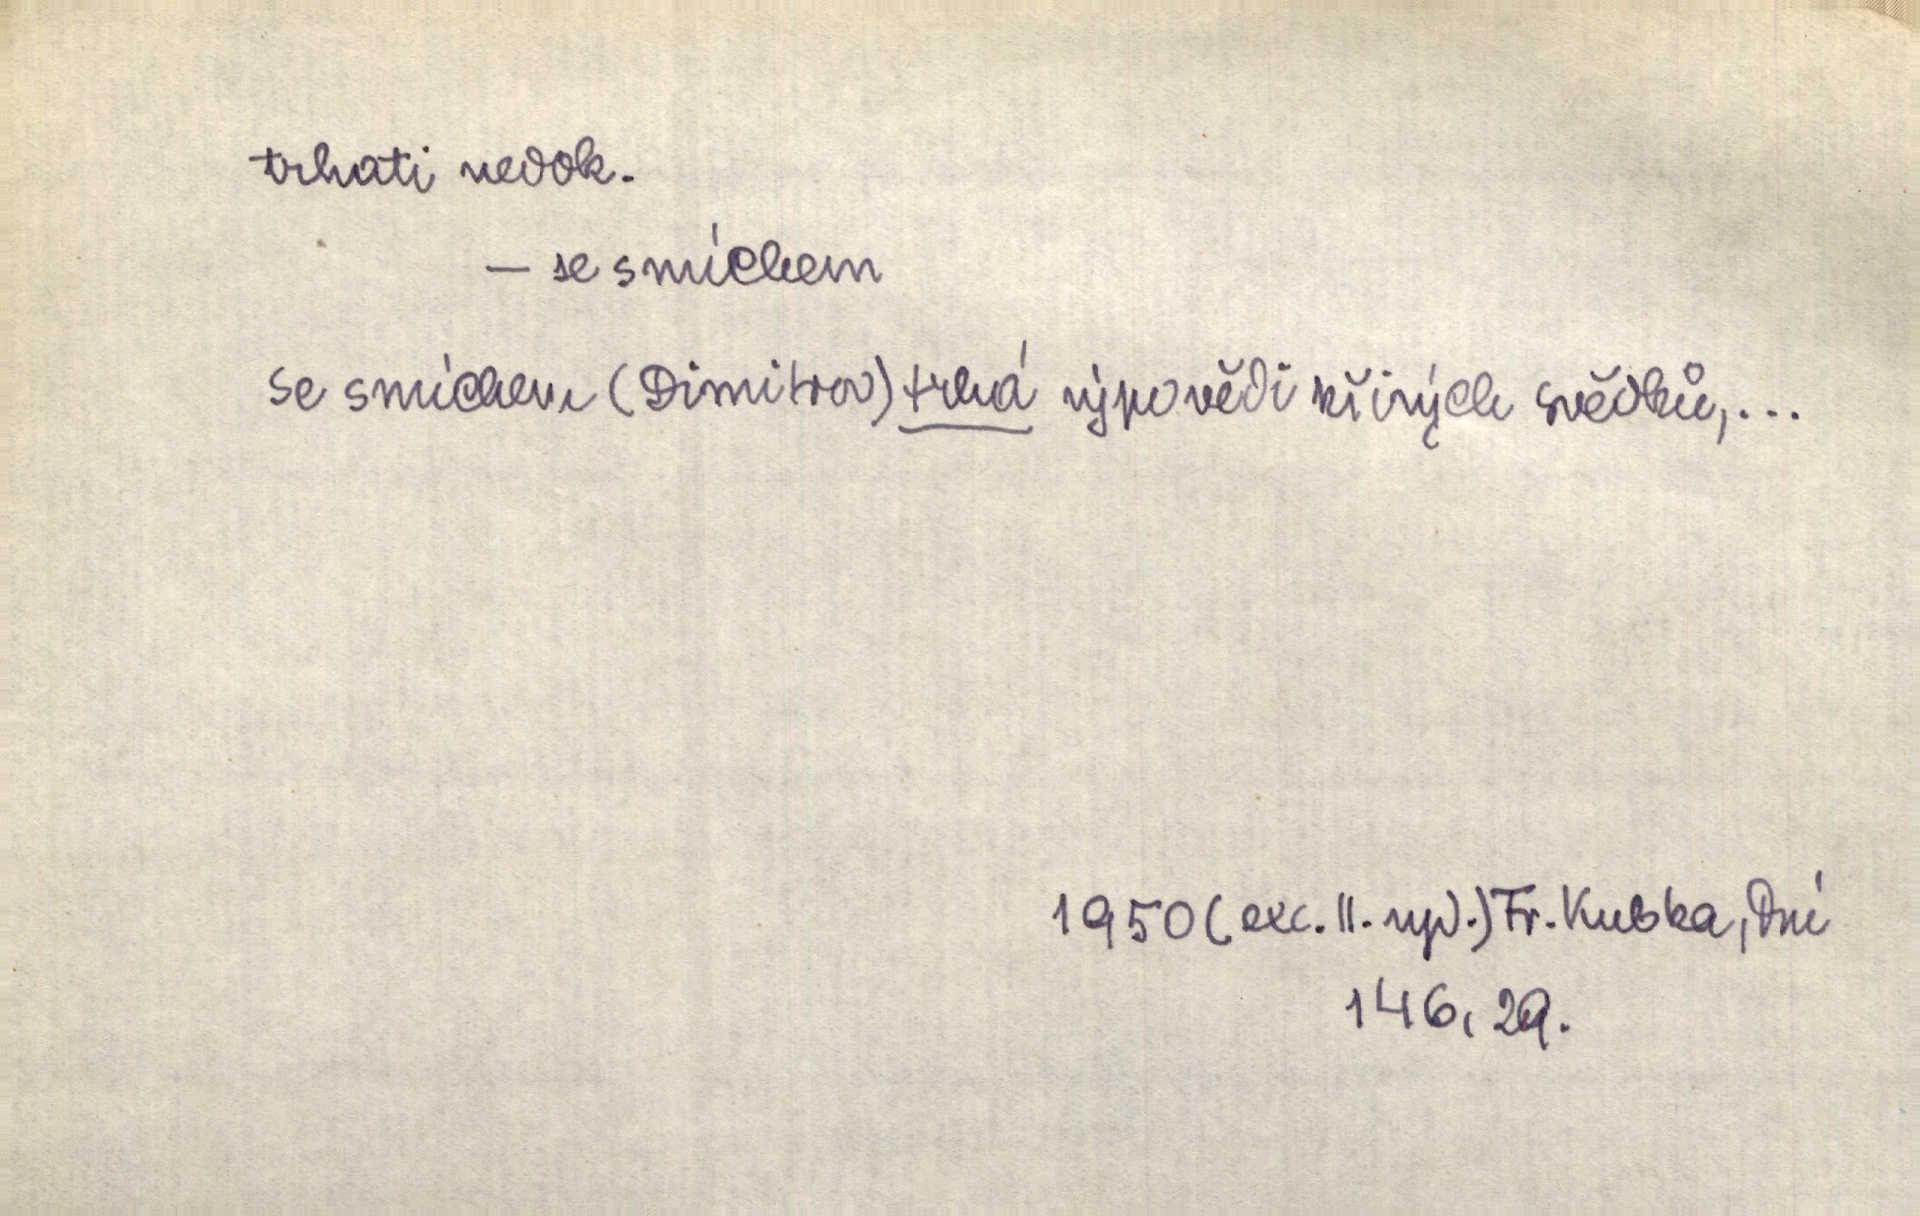 trhati nedok.
– se smíchem
se smíchem (Dimitrov) trhá výpovědi křivých svědků,...
1950 (exc. II. vyd.) Fr. Kubka, Dní
146, 29.